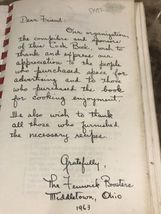 Dear Friend:
Our organization,
the compilers and sponsors
of this Cook Book, wish to
thank and express our
appreciation to the people
who purchased space for
advertising and to those
who purchased the book
for cooking enjoyment.
We also wish to thank
all those who furnished
the necessary recipes.
Gratefully,
The Fenwick Boosters
Middletown, Ohio
1963